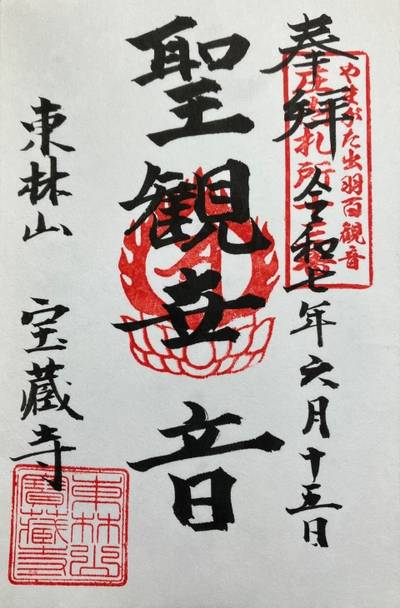 やまがた出羽百観音
庄内札所
奉拝 令和七年六月十五日
聖観世音
東林山 宝蔵寺
東林山
寶蔵寺